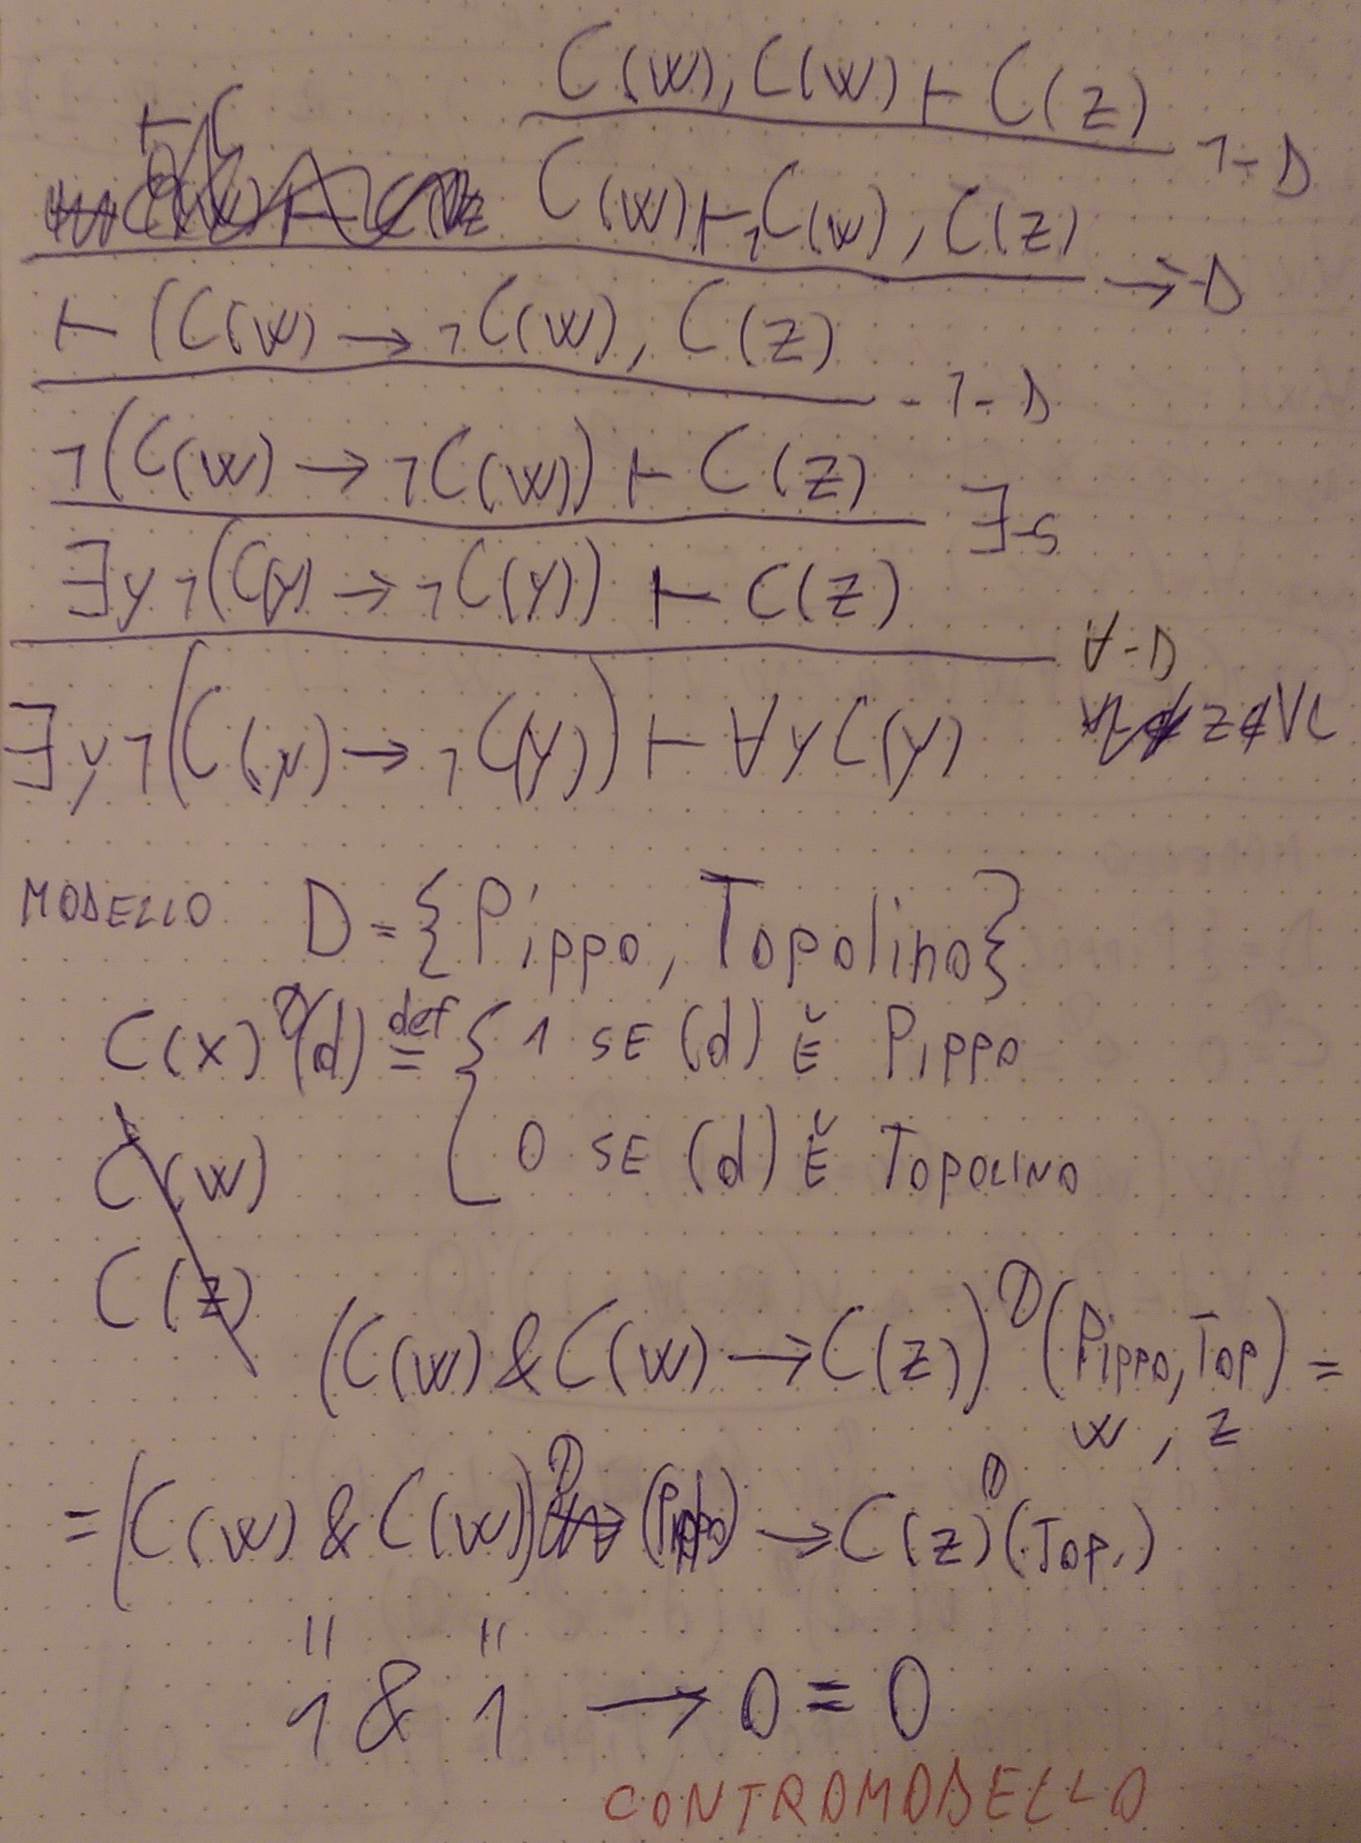 C(w), C(w) ⊢ C(z)
¬-D
C(w) ⊢ ¬C(w), C(z)
→-D
⊢ (C(w) → ¬C(w), C(z)
¬-D
¬(C(w) → ¬C(w)) ⊢ C(z)
∃-S
∃y ¬(C(y) → ¬C(y)) ⊢ C(z)
∀-D
∃y ¬(C(y) → ¬C(y)) ⊢ ∀y C(y)
z ∉ VL
MODELLO D = {Pippo, Topolino}
C(x)^D(d) def= { 1 SE (d) È Pippo
0 SE (d) È TOPOLINO
C(w)
C(z)
(C(w) & C(w) → C(z))^D (Pippo, Top) =
w, z
= (C(w) & C(w))^D (Pippo) → C(z)^D (Top.)
" "
1 & 1 → 0 = 0
CONTROMODELLO